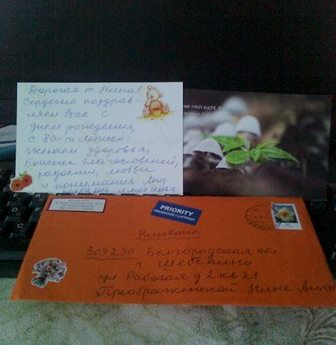 Дорогая т. Нина!
Сердечно поздрав-
ляем Вас с
днем рождения,
с 80-и летием!
Желаем здоровья,
Божьих благословений,
радости, любви
и понимания
mich sucht,
PRIORITY
PRIORITAIRE/LUFTPOST
309290 Белгородская обл
г. Шебекино
ул. Рабочая д 2 кв 21
Преображенской Нине